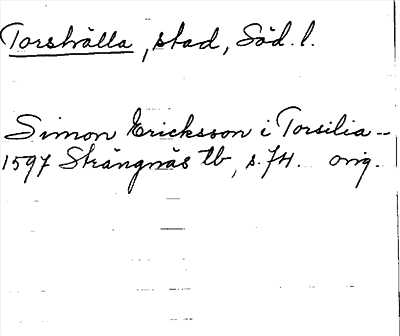 Torshälla, stad, Söd. l.
Simon Ericksson i Torsilia --
1597 Strängnäs tb, s. 74. orig.